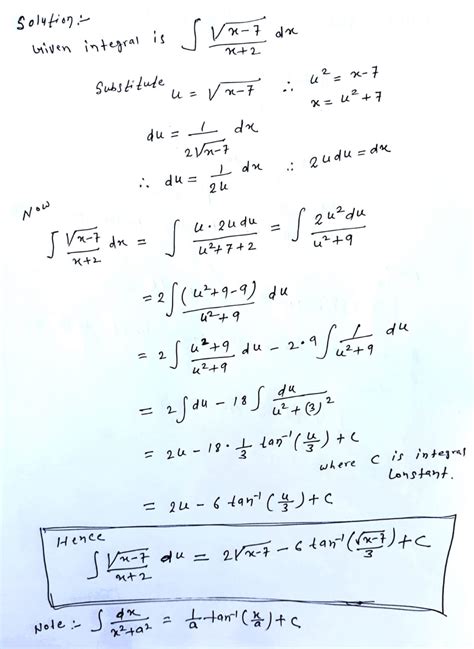 Solution:-
Given integral is ∫ √(x-7)/(x+2) dx
Substitute u = √(x-7) ∴ u² = x-7
x = u²+7
du = 1/(2√(x-7)) dx
∴ du = 1/(2u) dx ∴ 2udu = dx
Now
∫ √(x-7)/(x+2) dx = ∫ (u·2udu)/(u²+7+2) = ∫ (2u²du)/(u²+9)
= 2∫ (u²+9-9)/(u²+9) du
= 2∫ (u²+9)/(u²+9) du - 2·9 ∫ 1/(u²+9) du
= 2∫du - 18∫ du/(u²+(3)²)
= 2u - 18·1/3 tan⁻¹(u/3) + C
where C is integral
constant.
= 2u - 6 tan⁻¹(u/3) + C
Hence
∫ √(x-7)/(x+2) du = 2√(x-7) - 6 tan⁻¹(√(x-7)/3) + C
Note:- ∫ dx/(x²+a²) = 1/a tan⁻¹(x/a) + C